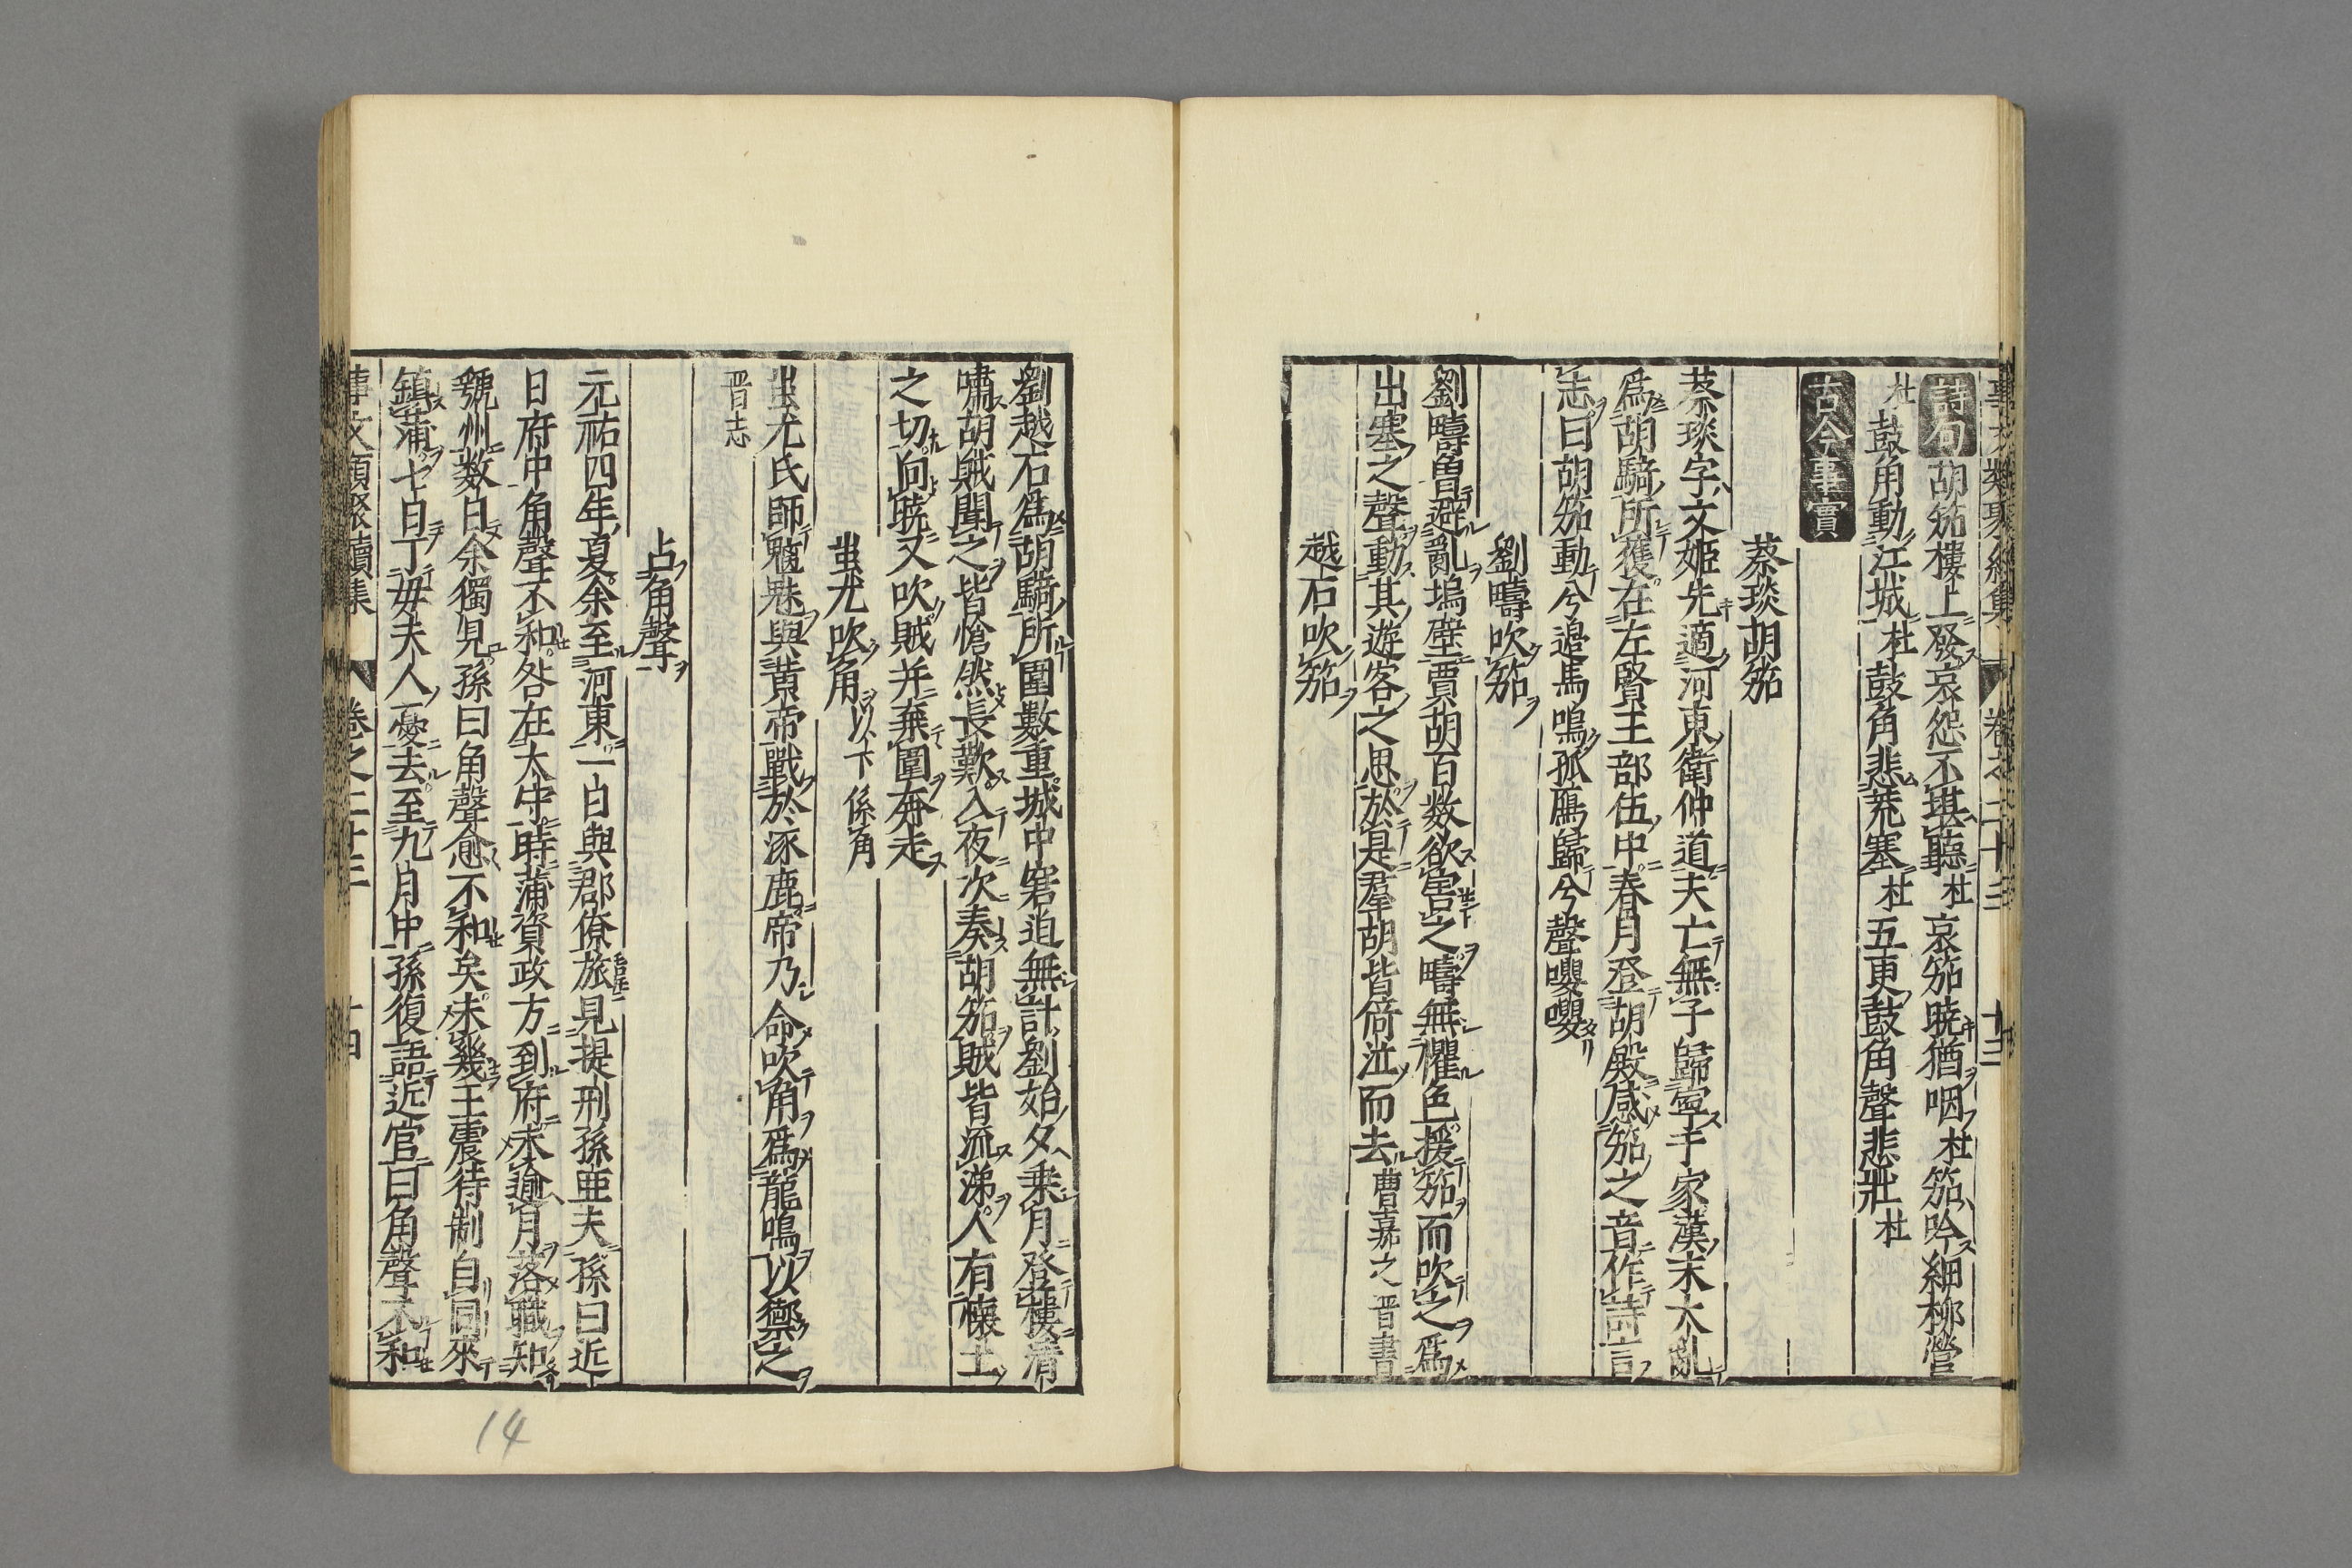 詩句 胡笳樓上發哀怨不堪聽杜哀笳暁猶咽杜笳吟細柳營
杜鼓角動江城杜鼓角悲荒塞杜五更鼓角聲悲壯杜
古今事實
蔡琰胡笳
蔡琰字文姬先適河東衛仲道夫亡無子歸寧于家漢末大亂
爲胡騎所獲在左賢王部伍中春月登胡殿感笳之音作詩言
志曰胡笳動兮邉馬鳴孤鴈歸兮聲嚶嚶
劉疇吹笳
劉疇曽避亂塢壁賈胡百数欲害之疇無懼色援笳而吹之爲
出塞之聲動其遊客之思於是羣胡皆倚泣而去曹嘉之晋書
越石吹笳
劉越石爲胡騎所圍數重城中窘迫無計劉始夕乗月登樓清
嘯胡賊聞之皆愴然長歎入夜次奏胡笳賊皆流涕人有懐土
之切向暁又吹賊并棄圍奔走
蚩尤吹角以下係角
蚩尤氏師魑魅與黄帝戰於涿鹿帝乃命吹角爲龍鳴以禦之
晋志
占角聲
元祐四年夏余至河東一日與郡僚旅見提刑孫亜夫孫曰近
日府中角聲不和咎在大守時蒲資政方到府未逾月落職知
虢州数日余獨見孫曰角聲愈不和矣未幾王震待制自同來
鎮蒲七日丁毋夫人憂去至九月中孫復語近官曰角聲不和
事文類聚續集 卷之二十三 十四